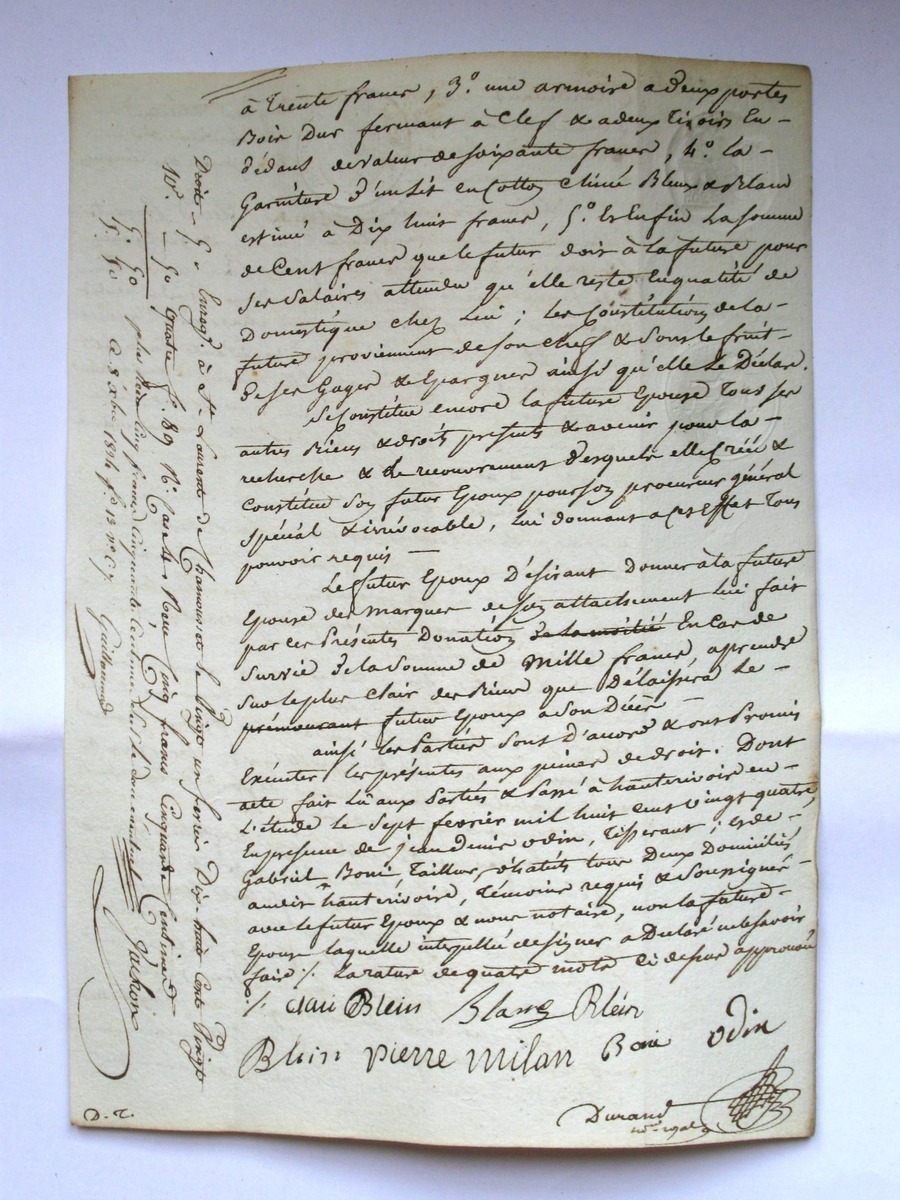 à trente francs, 3.° une armoire a deux portes
Bois Dur fermant à Clef & a deux tiroirs En-
dedans de valeur de soixante francs, 4.° la-
Garniture d'un Lit en Cotton Chiné Bleux & Blanc
estimé à Dix huit francs, 5.° Et Enfin La somme
de Cent francs que le futur doit à la future pour
ses salaires attendu qu'elle reste En qualité de
Domestique chez Lui ; Les Constitutions de la-
future proviennent de son chef & sont le fruit
de ses Gages & Epargnes ainsi qu'elle Le Déclare.
Se Constitue encore la future Epouse tous ses
autres Biens & droits présents & avenir pour la-
recherche & le recouvrement desquels elle Créé &
Constitue son futur Epoux pour son procureur général
spécial & irrévocable, lui donnant a cet Effet tous
pouvoir requis —
Le futur Epoux Désirant Donner à la future
Epouse des marques de son attachement Lui fait
par ces Présentes Donation de la moitié En Cas de
Survie de la Somme de Mille francs, a prendre
sur le plus Clair des Biens que Délaissera Le-
prémourant futur Epoux a Son Décès —
ainsi les Parties Sont D'accord & ont Promis
Exécuter les présentes aux peines de droit. Dont
acte fait Lû aux Parties & Passé à hauterivoire en-
L'étude le Sept février mil huit Cent Vingt quatre,
En présence de jean denis odin, tisserant ; et de-
Gabriel Boni Tailleur d'habits tous Deux Domiciliés
audit hauterivoire, témoins requis & Soussignés-
avec le futur Epoux & nous notaire, non la future-
Epouse laquelle interpellée de signer a Déclaré ne le savoir
faire ./. La rature de quatre mots Ci dessus approuvée
./. Blein Blein
Blein pierre milan Boni odin
Durand
D. T.
Droits — 5. " Enreg.t à St Laurent de Chamousset le Vingt un fevrier Dix-huit Cent Vingt
10.e — 50 quatre f.° 89 Reçu Cinq francs Cinquante Centimes
5. 50